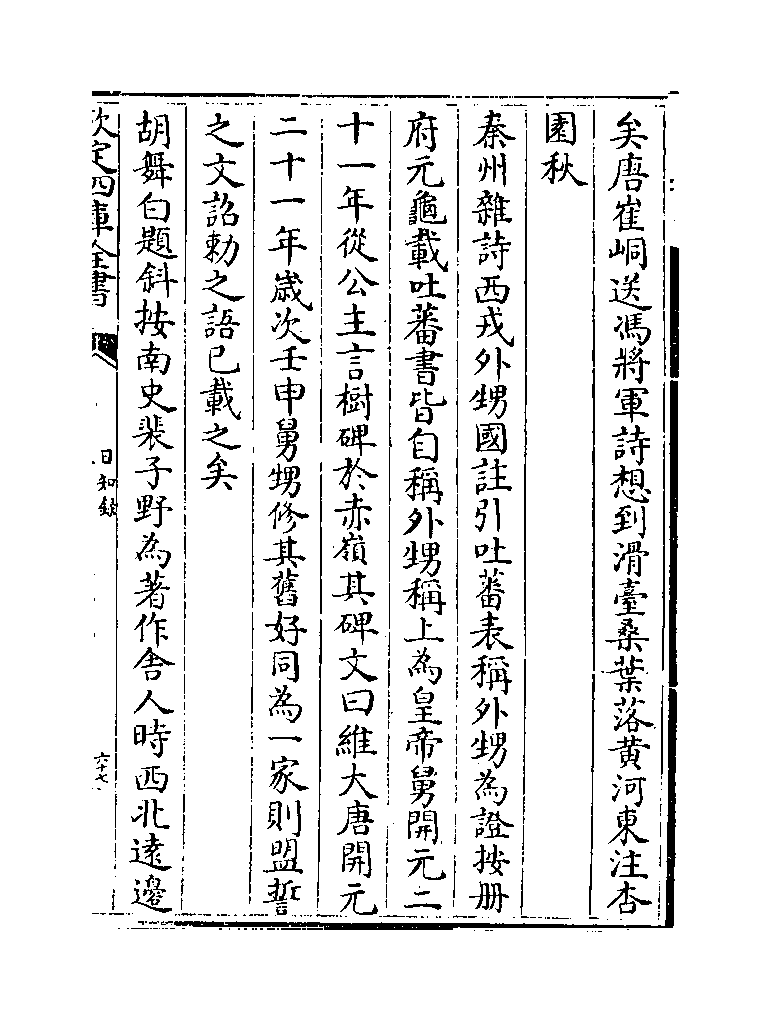 矣唐崔峒送馮將軍詩想到滑臺桑葉落黄河東注杏
園秋
秦州雜詩西戎外甥國註引吐蕃表稱外甥為證按册
府元龜載吐蕃書皆自稱外甥稱上為皇帝舅開元二
十一年從公主言樹碑於赤嶺其碑文曰維大唐開元
二十一年嵗次壬申舅甥修其舊好同為一家則盟誓
之文詔勅之語已載之矣
胡舞白題斜按南史裴子野為著作舍人時西北逺邊
欽定四庫全書
日知録
六十七